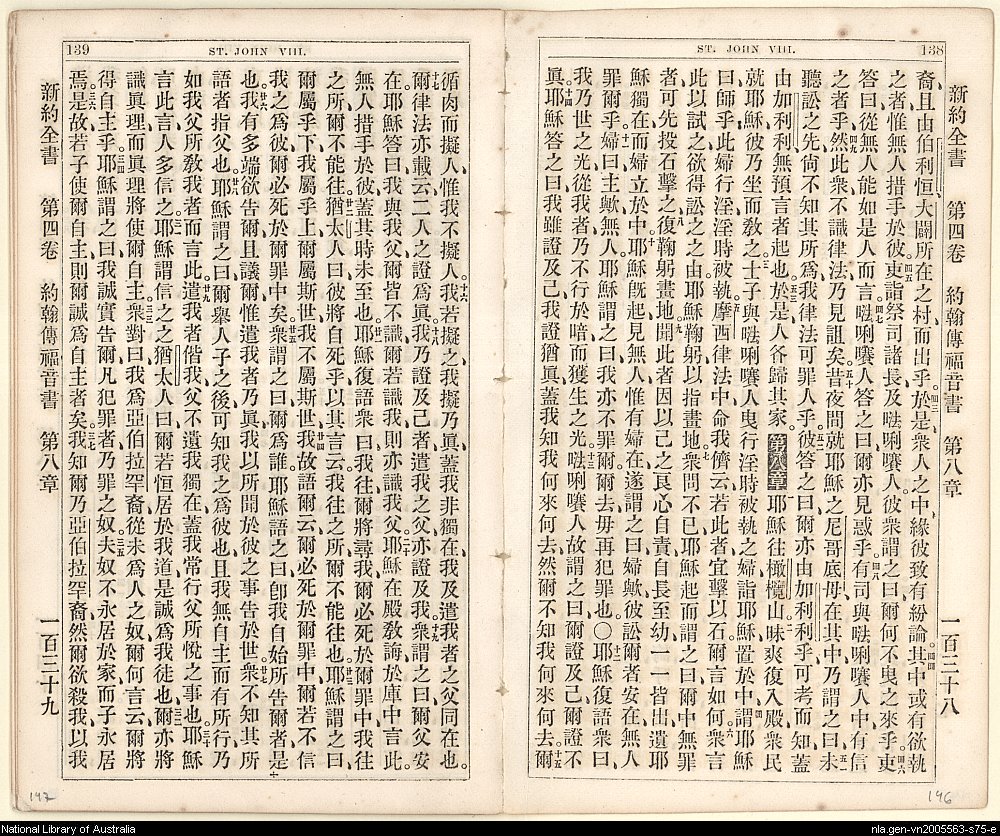 ST. JOHN VIII.
138
新約全書 第四卷 約翰傳福音書 第八章 一百三十八
裔、且由伯利恒大闢所在之村而出乎。四三於是衆人之中、緣彼致有紛論。四四其中或有欲執
之者、惟無人措手於彼。四五吏詣祭司諸長及唎人。彼衆謂之曰、爾何不曳之來乎。四六吏
答曰、從無人能如是人而言。四七唎人答之曰、爾亦見惑乎。四八有司與唎人中、有信
之者乎。四九然此衆不識律法、乃見詛矣。五十昔夜間就耶穌之尼哥底母、在其中、乃謂之曰、五一未
聽訟之先、尙不知其所爲、我律法可罪人乎。五二彼答之曰、爾亦由加利利乎、可考而知、蓋
由加利利無預言者起也。五三於是人各歸其家。第八章 一耶穌往橄欖山。二昧爽復入殿、衆民
就耶穌、彼乃坐而敎之。三士子與唎人、曳行淫時被執之婦詣耶穌、置於中、四謂耶穌
曰、師乎、此婦行淫、淫時被執。五摩西律法中、命我儕云、若此者宜擊以石、爾言如何。六衆言
此以試之、欲得訟之之由、耶穌鞠躬以指畫地。七衆問不已、耶穌起而謂之曰、爾中無罪
者、可先投石擊之。八復鞠躬畫地。九聞此者因以己之良心自責、自長至幼、一一皆出、遺耶
穌獨在、而婦立於中。十耶穌旣起、見無人、惟有婦在、遂謂之曰、婦歟、彼訟爾者安在、無人
罪爾乎。十一婦曰、主歟、無人。耶穌謂之曰、我亦不罪爾、爾去、毋再犯罪也。〇十二耶穌復語衆曰、
我乃世之光、從我者、乃不行於暗、而獲生之光。十三唎人故謂之曰、爾證及己、爾證不
眞。十四耶穌答之曰、我雖證及己、我證猶眞、蓋我知我何來何去、然爾不知我何來何去。十五爾
139
ST. JOHN VIII.
循肉而擬人、惟我不擬人。十六我若擬之、我擬乃眞、蓋我非獨在、我及遣我者之父同在也。
十七爾律法亦載云、二人之證爲眞。十八我乃證及己者、遣我之父、亦證及我。十九衆謂之曰、爾父安
在、耶穌答曰、我與我父、爾皆不識、爾若識我、則亦識我父。二十耶穌在殿敎誨、於庫中言此、
無人措手於彼、蓋其時未至也。廿一耶穌復語衆曰、我往、爾將尋我、爾必死於爾罪中、我往
之所、爾不能往。廿二猶太人曰、彼將自死乎、以其言云、我往之所、爾不能往也。廿三耶穌謂之曰、
爾屬乎下、我屬乎上、爾屬斯世、我不屬斯世。廿四我故語爾云、爾必死於爾罪中、爾若不信
我之爲彼、爾必死於爾罪中矣。廿五衆謂之曰、爾爲誰。耶穌語之曰、卽我自始所告爾者是
也。廿六我有多端、欲吿爾且議爾、惟遣我者乃眞、我以所聞於彼之事、告於世。廿七衆不知其所
語者指父也。廿八耶穌謂之曰、爾舉人子之後、可知我之爲彼也、且我無自主而有所行、乃
如我父所敎我者而言此。廿九遣我者偕我、父不遺我獨在、蓋我常行父所悅之事也。三十耶穌
言此言、人多信之。三一耶穌謂信之之猶太人曰、爾若恒居於我道、是誠爲我徒也。三二爾亦將
識眞理、而眞理將使爾自主。三三衆對曰、我爲亞伯拉罕裔、從未爲人之奴、爾何言云、爾將
得自主乎。三四耶穌謂之曰、我誠實告爾、凡犯罪者、乃罪之奴。三五夫奴不永居於家、而子永居
焉。三六是故若子使爾自主、則爾誠爲自主者矣。三七我知爾乃亞伯拉罕裔、然爾欲殺我、以我
新約全書 第四卷 約翰傳福音書 第八章 一百三十九
147
146
National Library of Australia
nla.gen-vn2005563-s75-e